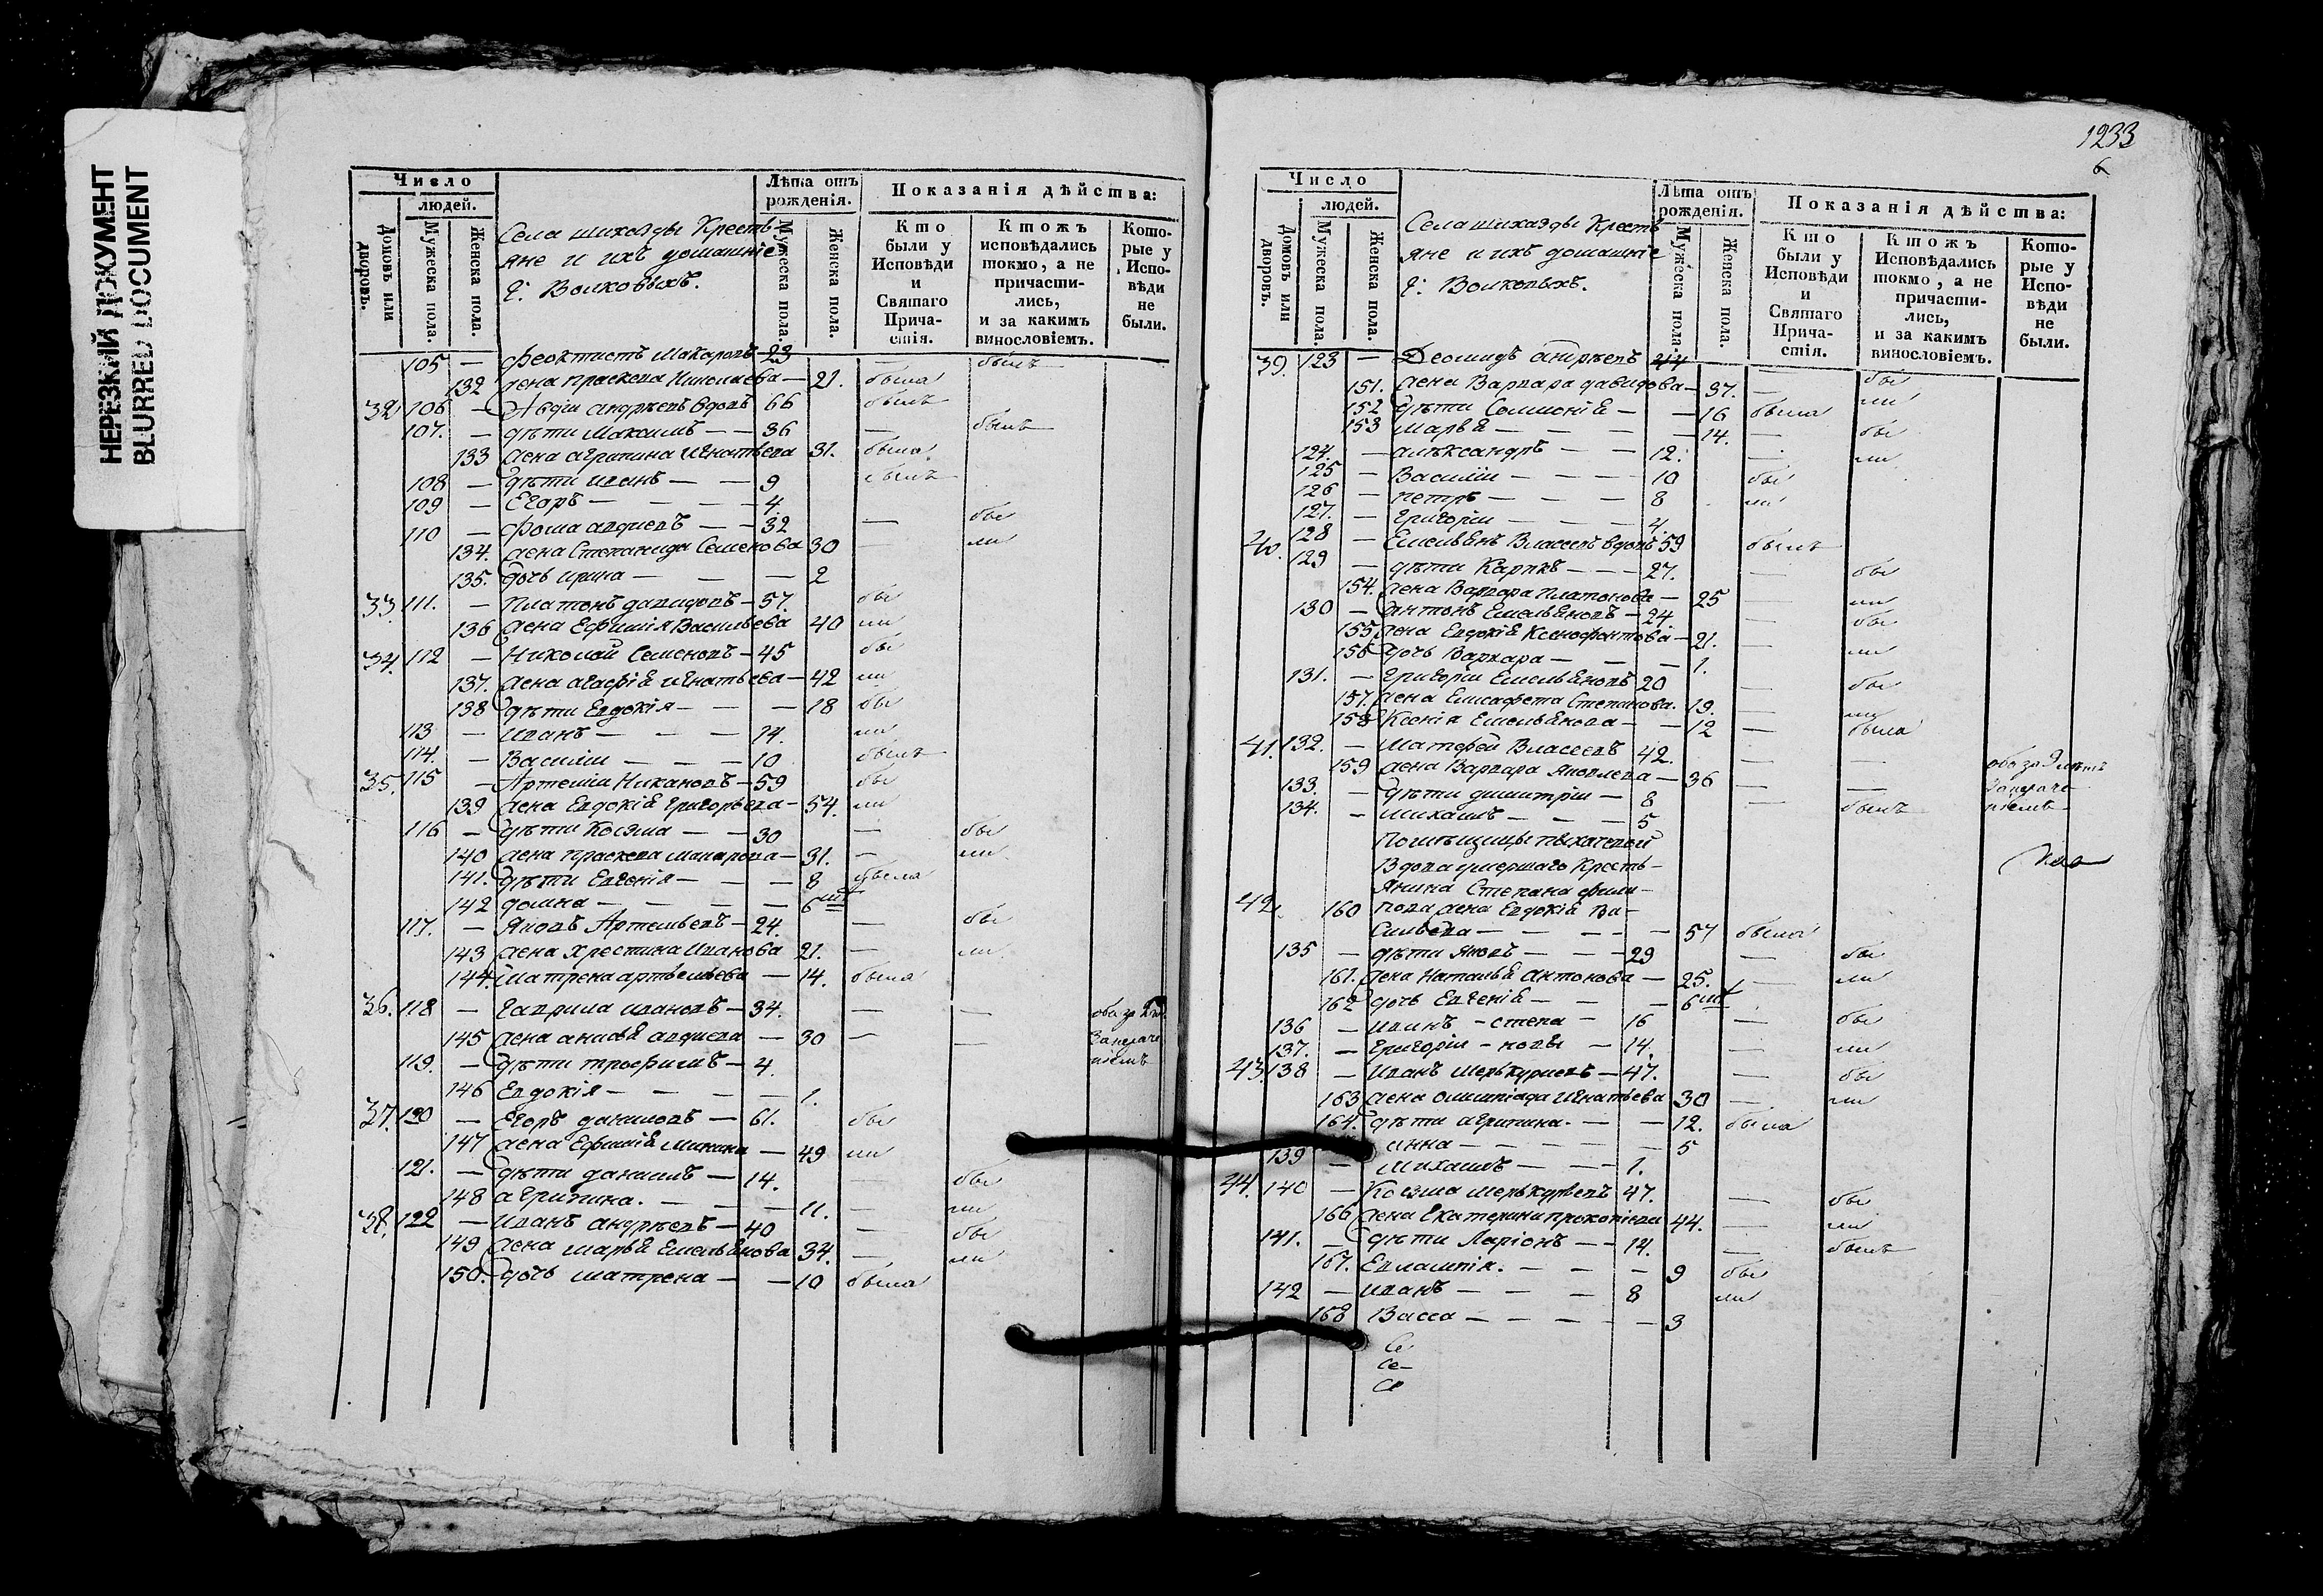 НЕРЕЗКИЙ ДОКУМЕНТ
BLURRED DOCUMENT
Число
людей.
Домовъ или дворовъ.
Мужеска пола.
Женска пола.
Села шихазды Кресть-
яне и ихъ домашніе
Г: Волковыхъ.
Лѣта отъ рожденія.
Мужеска пола.
Женска пола.
Показанія дѣйства:
Кто были у Исповѣди и Святаго Прича-стія.
Ктожъ исповѣдались токмо, а не причасти-лись, и за какимъ винословіемъ.
Кото-рые у Испо-вѣди не были.
105 — Феоктистъ Макаровъ — 23 — былъ
132 жена Праскева Николаева — 21. была
32 106 — Авдiи андрѣевъ вдовъ 66 былъ
107. — дѣти Максимъ — — 36 — былъ
133 жена агрипина игнатьева 31. была
108 — дѣти иванъ — — 9 былъ
109 — Егоръ — — — 4.
110 — фома авдиевъ — — 32 — бы
134. жена Степанида Семенова 30 — ли
135. дочь ирина — — — 2
33 111. — Платонъ давидовъ — 57. бы
136 жена Ефимія Васильева 40 ли
34. 112 — Николай Семеновъ — 45 бы
137. жена агафія игнатьева — 42 ли
138 дѣти Евдокія — — — 18 бы
113 — иванъ — — — 14. ли
114. — Василіи — — — 10 былъ
35. 115 — Артеміи Никановъ — 59 бы
139 жена Евдокія Григорьева — 54. ли
116 — дѣти Козма — — 30 — бы
140 жена Праскева макарова — 31. — ли
141. дѣти Евгенія — — — 8 была
142 домна — — — — 6
117. — Яковъ Артемьевъ — 24. — бы
143 жена Хрестина иванова 21. — ли
144. матрена артемьева — 14. была
36. 118 — Гаврила ивановъ — 34. — — оба за
145 жена анисья авдиева — 30 — —
119. — дѣти трофимъ — 4.
146 Евдокія — — — — 1.
37. 120 — Егоръ даниловъ — 61. бы
147 жена Ефимія Минина — 49 ли
121. — дѣти данилъ — 14. — бы
148 агрипина. — — — 11. — ли
38. 122 — иванъ андрѣевъ — 40 — бы
149 жена марья Емельянова 34. — ли
150. дочь матрена — — 10 была
1233
6
Число
людей.
Домовъ или дворовъ.
Мужеска пола.
Женска пола.
Села шихазды Кресть
яне и ихъ домашніе
Г: Волковыхъ.
Лѣта отъ рожденія.
Мужеска пола.
Женска пола.
Показанія дѣйства:
Кто были у Исповѣди и Святаго Прича-стія.
Ктожъ Исповѣдались токмо, а не причасти-лись, и за какимъ винословіемъ.
Кото-рые у Испо-вѣди не были.
39. 123 — Деомидъ андрѣевъ 44
151. жена Варвара давидова — 37. — бы
152 дѣти Соломонія — — 16 была ли
153 марья — — — — 14. — бы
124. — александръ — — 12. — ли
125 — Василіи — — — 10 бы
126 — петръ — — — 8 ли
127. — Григоріи — — — 4.
40. 128 — Емельянъ Власевъ вдовъ 59 былъ
129 — дѣти Карпъ — — — 27. — бы
154. жена Варвара Платонова — 25 — ли
130 — антонъ Емельяновъ — 24 — бы
155 жена Евдокія Ксенофонтова — 21. — ли
156 дочь Варвара — — — 1.
131. — Григоріи Емельяновъ 20 — бы
157. жена Елисафета Степанова. 19. — ли
158 Ксенія Емельянова — — 12 — была
41. 132. — Матфей Власевъ 42. — —
159 жена Варвара Яковлева — 36 — —
133. — дѣти димитріи — 8 — былъ
134. — михаилъ — — — 5
Вдова умершаго Кресть-
янина Степана фили-
42. 160 пова жена Евдокія Ва-
сильева — — — — — 57 была
135 — дѣти Яковъ — — 29 — бы
161. жена Наталья Антонова — 25. — ли
162 дочь Евгенія — — — 6
136 — иванъ — степа — 16 — бы
137. — Григоріи — новы — 14. — ли
43. 138 — иванъ меркуриевъ — 47. — бы
163 жена олимпіада игнатьева 30 — ли
164. дѣти агрипина. — — 12. была
анна — — — — — 5
139 — михаилъ — — — 1.
44. 140 — Козма меркурьевъ 47. — бы
166 жена Екатерина прокопіева 44. — ли
141. — дѣти Ларіонъ — — 14. — былъ
167. Евлампія. — — — 9 бы
142 — иванъ — — — 8 ли
168 Васса — — — — — 3
Се
Се-
Се